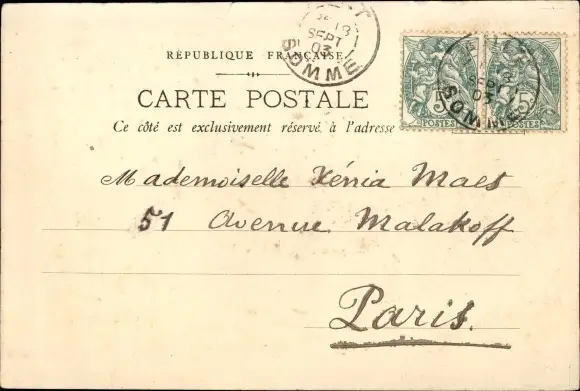 18
SEPT
03
SOMME
RÉPUBLIQUE FRANÇAISE
CARTE POSTALE
Ce côté est exclusivement réservé à l'adresse
5 POSTES
5 POSTES
18
SEPT
03
SOMME
Mademoiselle Xénia Maes
51 Avenue Malakoff
Paris.